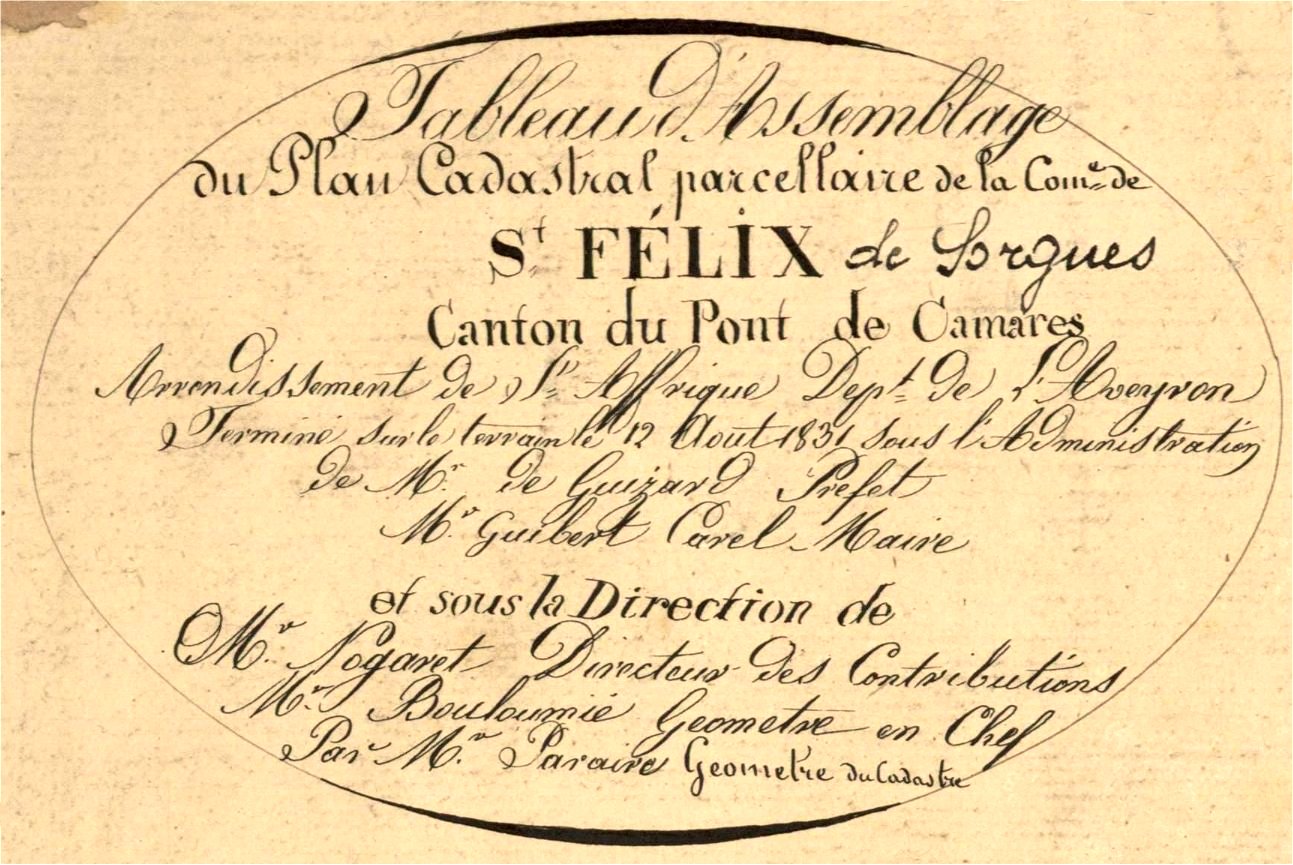 Tableau d'Assemblage
du Plan Cadastral parcellaire de la Com.e de
St. FÉLIX de Sorgues
Canton du Pont de Camares
Arrondissement de St. Affrique Dept. de L'Aveyron
Terminé sur le terrain le 12 Aout 1831 sous l'Administration
de Mr. de Guizard Prefet
Mr. Guibert Carel Maire
et sous la Direction de
Mr. Nogaret Directeur des Contributions
Mr. Bouloumié Geometre en Chef
Par Mr. Paraire Geometre du Cadastre